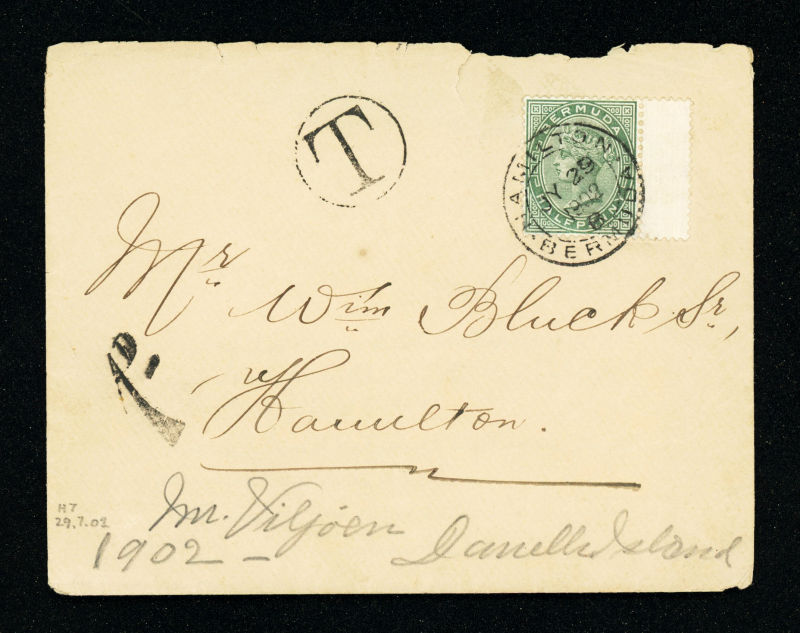 T
BERMUDA
HALFPENNY
HAMILTON
JY 29
02
BERMUDA
Mr Wm Bluck Sr,
Hamilton.
H7
29.7.02
M. Viljoen
1902 — Darrell's Island